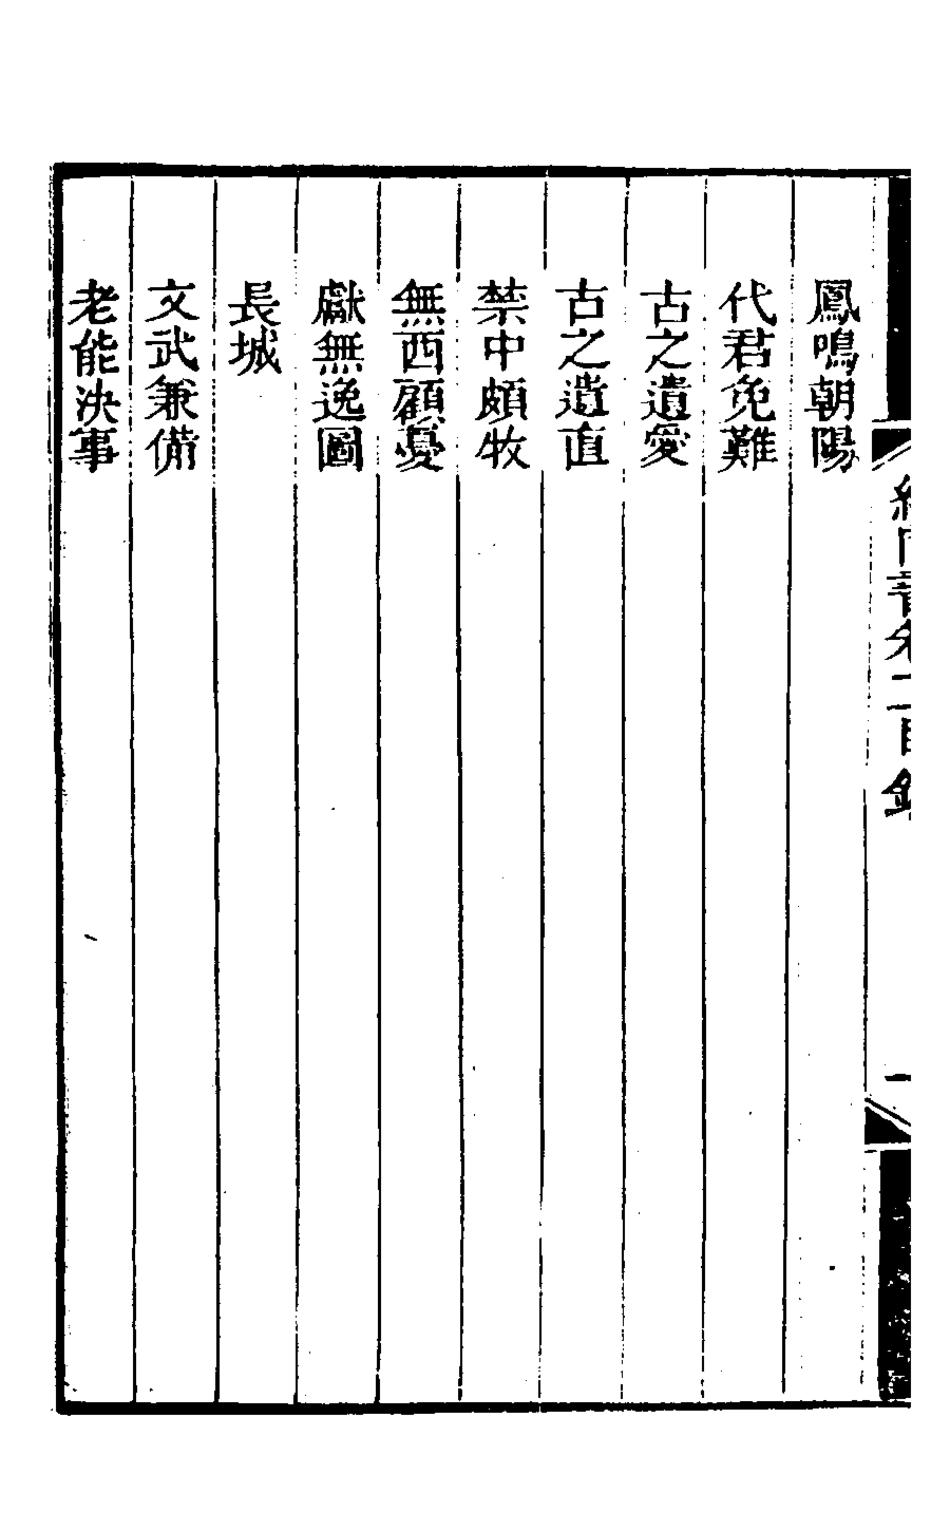 鳳鳴朝陽
代君免難
古之遺愛
古之遺直
禁中頗牧
無西顧憂
獻無逸圖
長城
文武兼備
老能決事